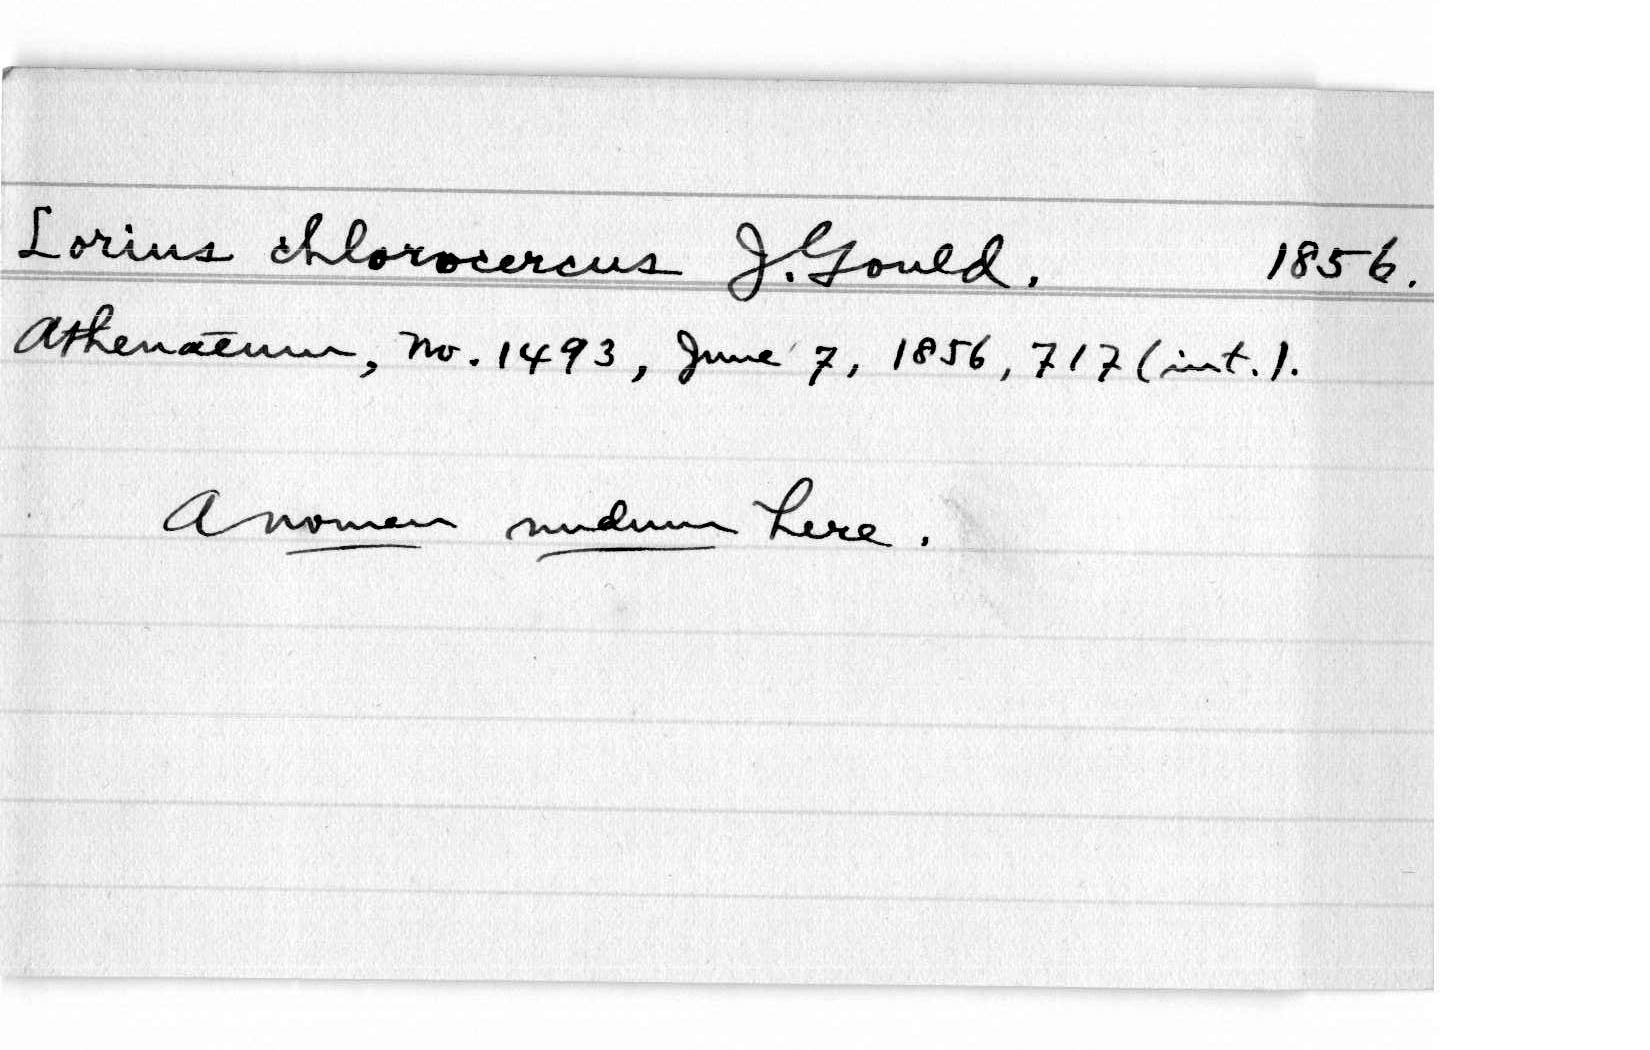 Lorius chlorocercus J. Gould. 1856.
Athenaeum, no. 1493, June 7, 1856, 717 (int.).
A nomen nudum here.